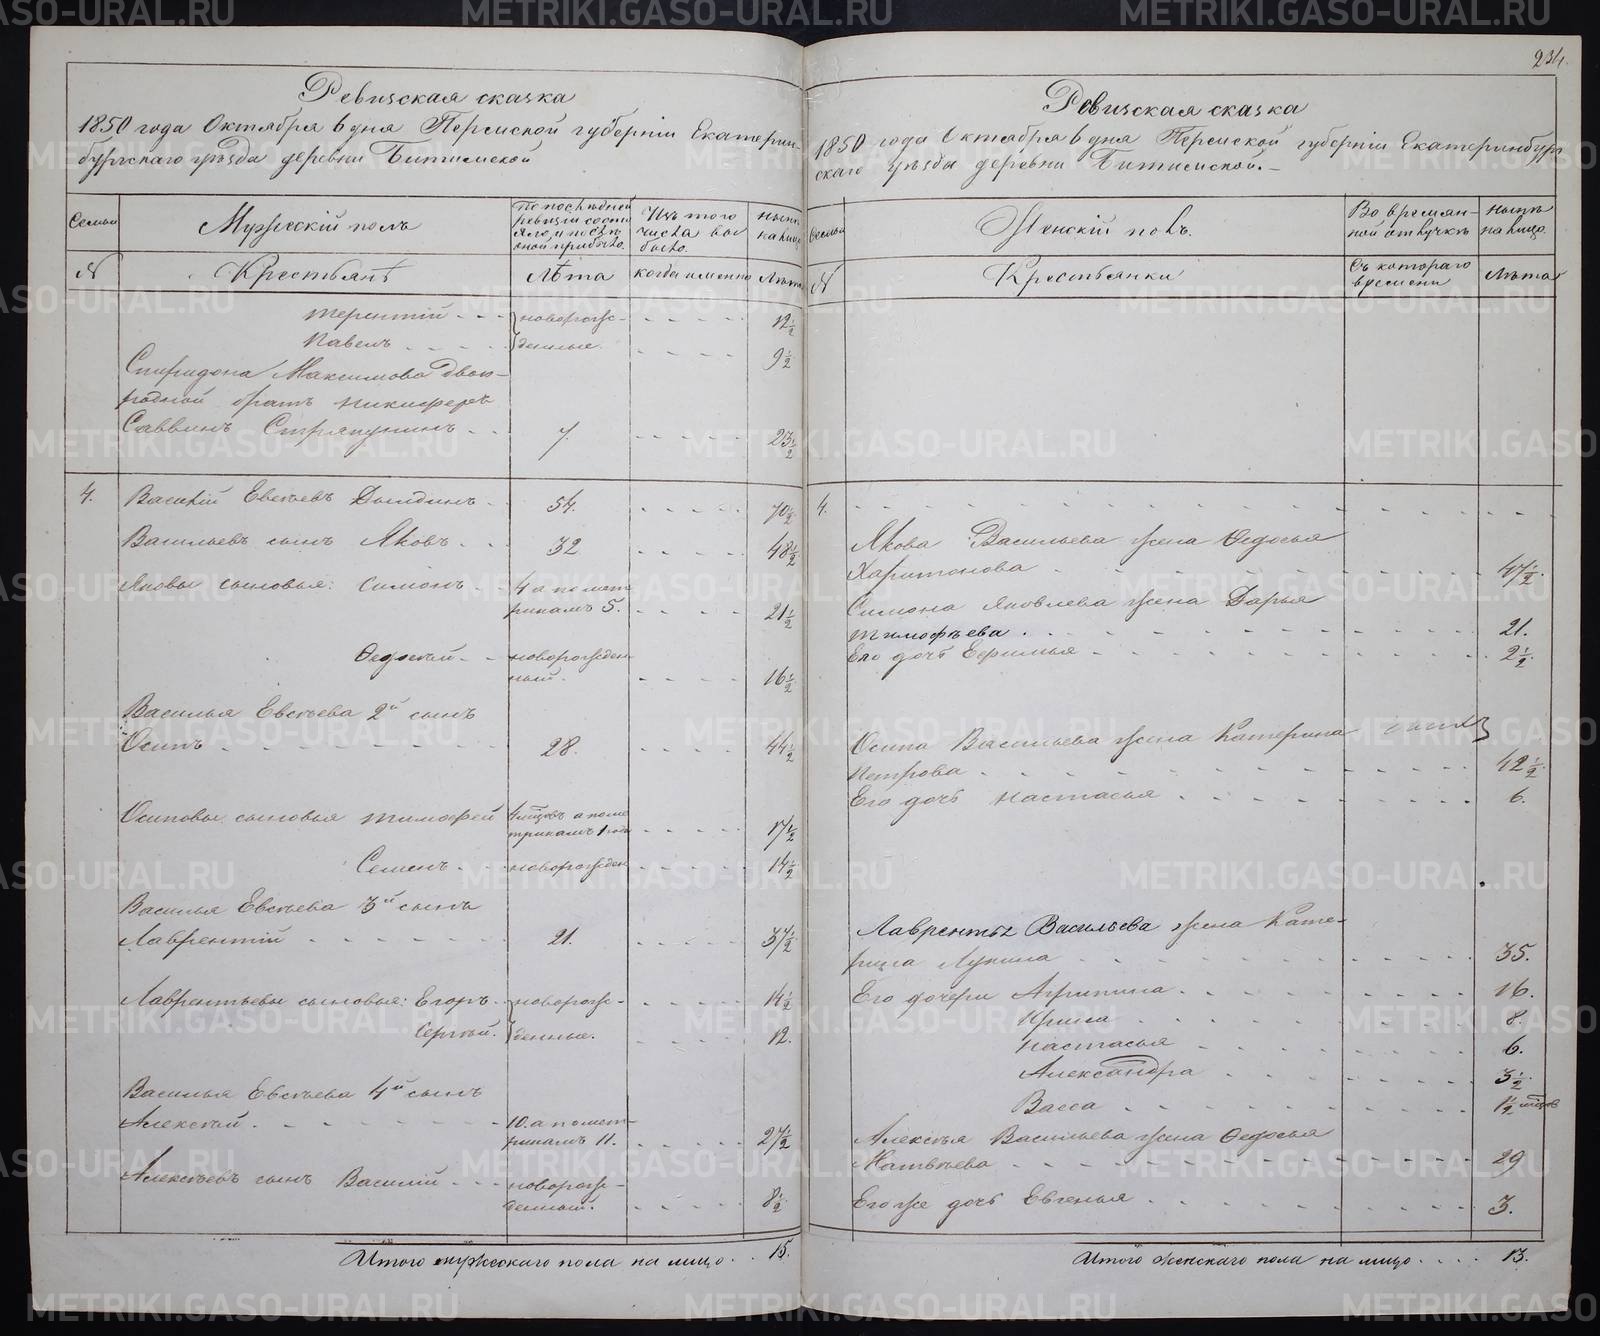 234.
Ревизская сказка
1850 года Октября 6 дня Пермской губернiи Екатерин-
бургскаго уѣзда деревни Битимской
Семьи
Мужескiй полъ
По послѣдней
ревизiи состо
яло, и послѣ
оной прибыло.
Изъ того
числа вы
было.
нынѣ
на лицо
№
Крестьянѣ
Лѣта
когда именно
Лѣта
Терентiй - - -
новорож-
12½
Павелъ - - - -
денные.
9½
Спиридона Максимова двою-
родной братъ Никифоръ
Саввинъ Стряпунинъ - -
7.
23½
4.
Василiй Евсѣевъ Дылдинъ -
54.
70½
Васильевъ сынъ Яковъ - -
32
48½
Яковы сыновья: Симонъ -
4 а по мет
рикамъ 5.
21½
Федосѣй - -
новорожден-
ный.
16½
Василья Евсѣева 2й сынъ
Осипъ - - - - - - - -
28.
44½
Осиповы сыновья Тимофей
4 мѣсѣцовъ а по ме
трикамъ 1 года
17½
Семенъ - - -
новорожден
14½
Василья Евсѣева 3й сынъ
Лаврентiй - - - - - -
21.
37½
Лаврентьевы сыновья: Егоръ - -
новорож-
14½
Сергѣй.
денные.
12.
Василья Евсѣева 4й сынъ
Алексѣй - - - - - - -
10. а по мет-
рикамъ 11.
27½
Алексѣевъ сынъ Василiй - - -
новорож-
денный.
8½
Итого мужескаго пола на лицо - - 15.
Ревизская сказка
1850 года Октября 6 дня Пермской губернiи Екатеринбург
скаго уѣзда деревни Битимской. -
Семьи
Женскiй полъ.
Во времян-
ной отлучкѣ
нынѣ
на лицо.
№
Крестьянки
Съ котораго
времени
Лѣта
4.
Якова Васильева жена Федосья
Харитонова - - - - - -
47½.
Симона Яковлева жена Дарья
Тимофѣева - - - - - -
21.
Его дочь Ефимья - - - - -
2½.
Осипа Васильева жена Катерина
Петрова - - - - - - -
42½.
Его дочь Настасья - - - -
6.
Лаврентья Васильева жена Кате-
рина Лукина - - - - -
35.
Его дочери Агрипина - - -
16.
Ириса - - - -
8.
Настасья - - -
6.
Александра - - -
3½.
Васса - - - -
1½ мѣцов
Алексѣя Васильева жена Федосья
Матвѣева - - - - - -
29
Его же дочь Евгенья - - - -
3.
Итого женскаго пола на лицо - - - - 13.
METRIKI.GASO-URAL.RU